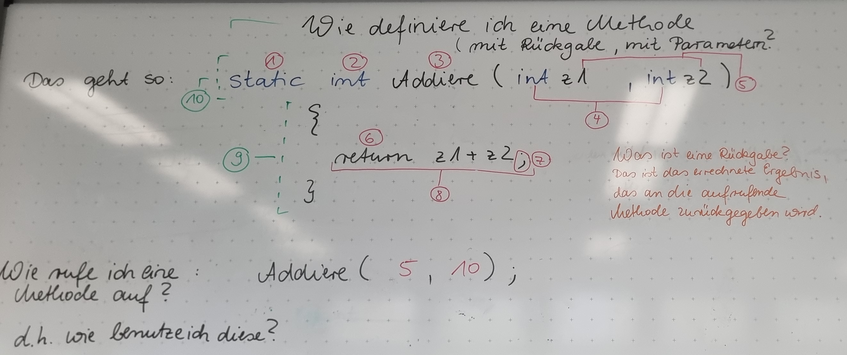 Wie definiere ich eine Methode
(mit Rückgabe, mit Parametern?
1 2 3
Das geht so: static int Addiere ( int z1 , int z2 ) 5
10
4
{
6
9 return z1 + z2 ; 7
8
}
Was ist eine Rückgabe?
Das ist das errechnete Ergebnis,
das an die aufrufende
Methode zurückgegeben wird.
Wie rufe ich eine : Addiere ( 5 , 10 ) ;
Methode auf?
d.h. wie benutze ich diese?